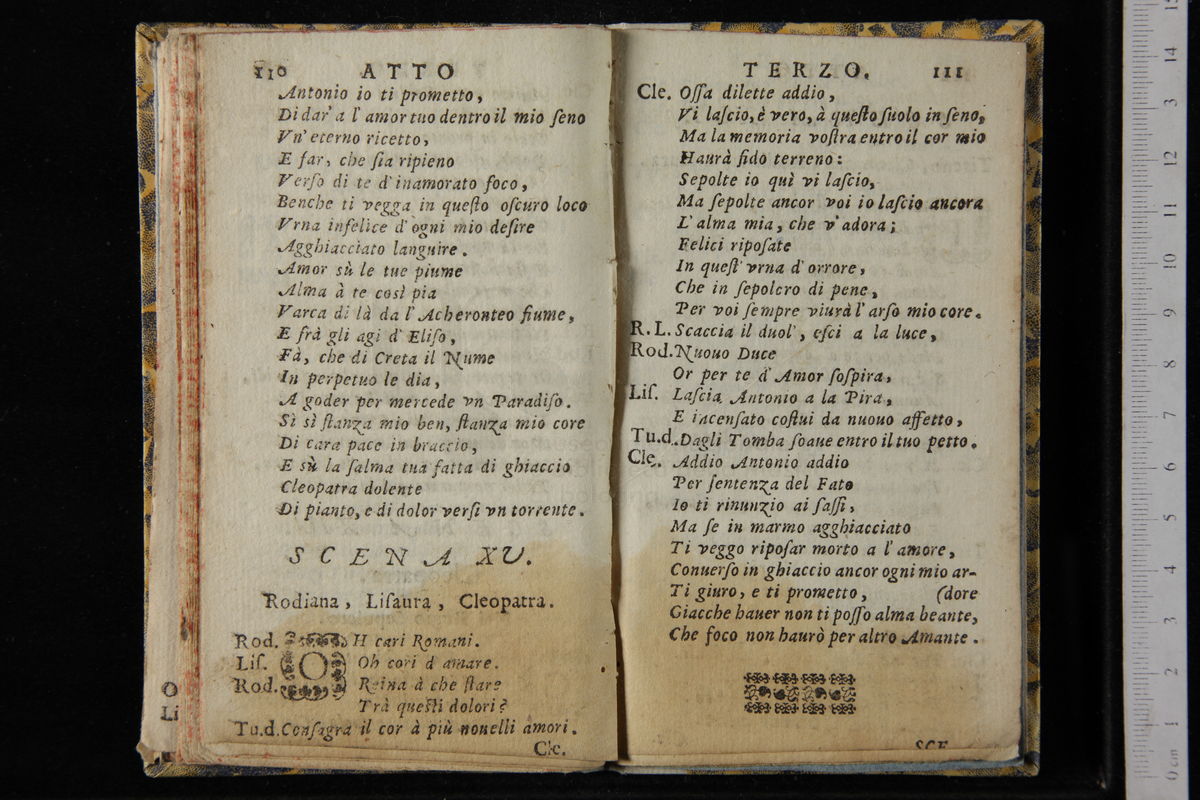 110 ATTO
Antonio io ti prometto,
Di dar' a l' amor tuo dentro il mio ſeno
Vn' eterno ricetto,
E far, che ſia ripieno
Verſo di te d' inamorato foco,
Benche ti vegga in queſto oſcuro loco
Vrna infelice d' ogni mio deſire
Agghiacciato languire.
Amor sù le tue piume
Alma à te così pia
Varca di là da l' Acheronteo fiume,
E frà gli agi d' Eliſo,
Fà, che di Creta il Nume
In perpetuo le dia,
A goder per mercede vn Paradiſo.
Sì sì ſtanza mio ben, ſtanza mio core
Di cara pace in braccio,
E sù la ſalma tua fatta di ghiaccio
Cleopatra dolente
Di pianto, e di dolor verſi vn torrente.
SCENA XV.
Rodiana, Liſaura, Cleopatra.
Rod. OH cari Romani.
Liſ. Oh cori d' amare.
Rod. Reina à che ſtare
Trà queſti dolori?
Tu.d. Conſagra il cor à più nouelli amori.
Cle.
O
Li
TERZO. 111
Cle. Oſſa dilette addio,
Vi laſcio, è vero, à queſto ſuolo in ſeno,
Ma la memoria voſtra entro il cor mio
Haurà fido terreno:
Sepolte io quì vi laſcio,
Ma ſepolte ancor voi io laſcio ancora
L' alma mia, che v' adora;
Felici ripoſate
In queſt' vrna d' orrore,
Che in ſepolcro di pene,
Per voi ſempre viurà l' arſo mio core.
R. L. Scaccia il duol', eſci a la luce,
Rod. Nuouo Duce
Or per te d' Amor ſoſpira,
Liſ. Laſcia Antonio a la Pira,
E incenſato coſtui da nuouo affetto,
Tu.d. Dagli Tomba ſoaue entro il tuo petto.
Cle. Addio Antonio addio
Per ſentenza del Fato
Io ti rinunzio ai ſaſſi,
Ma ſe in marmo agghiacciato
Ti veggo ripoſar morto a l' amore,
Conuerſo in ghiaccio ancor ogni mio ar-
Ti giuro, e ti prometto, (dore
Giacche hauer non ti poſſo alma beante,
Che foco non haurò per altro Amante.
SCE